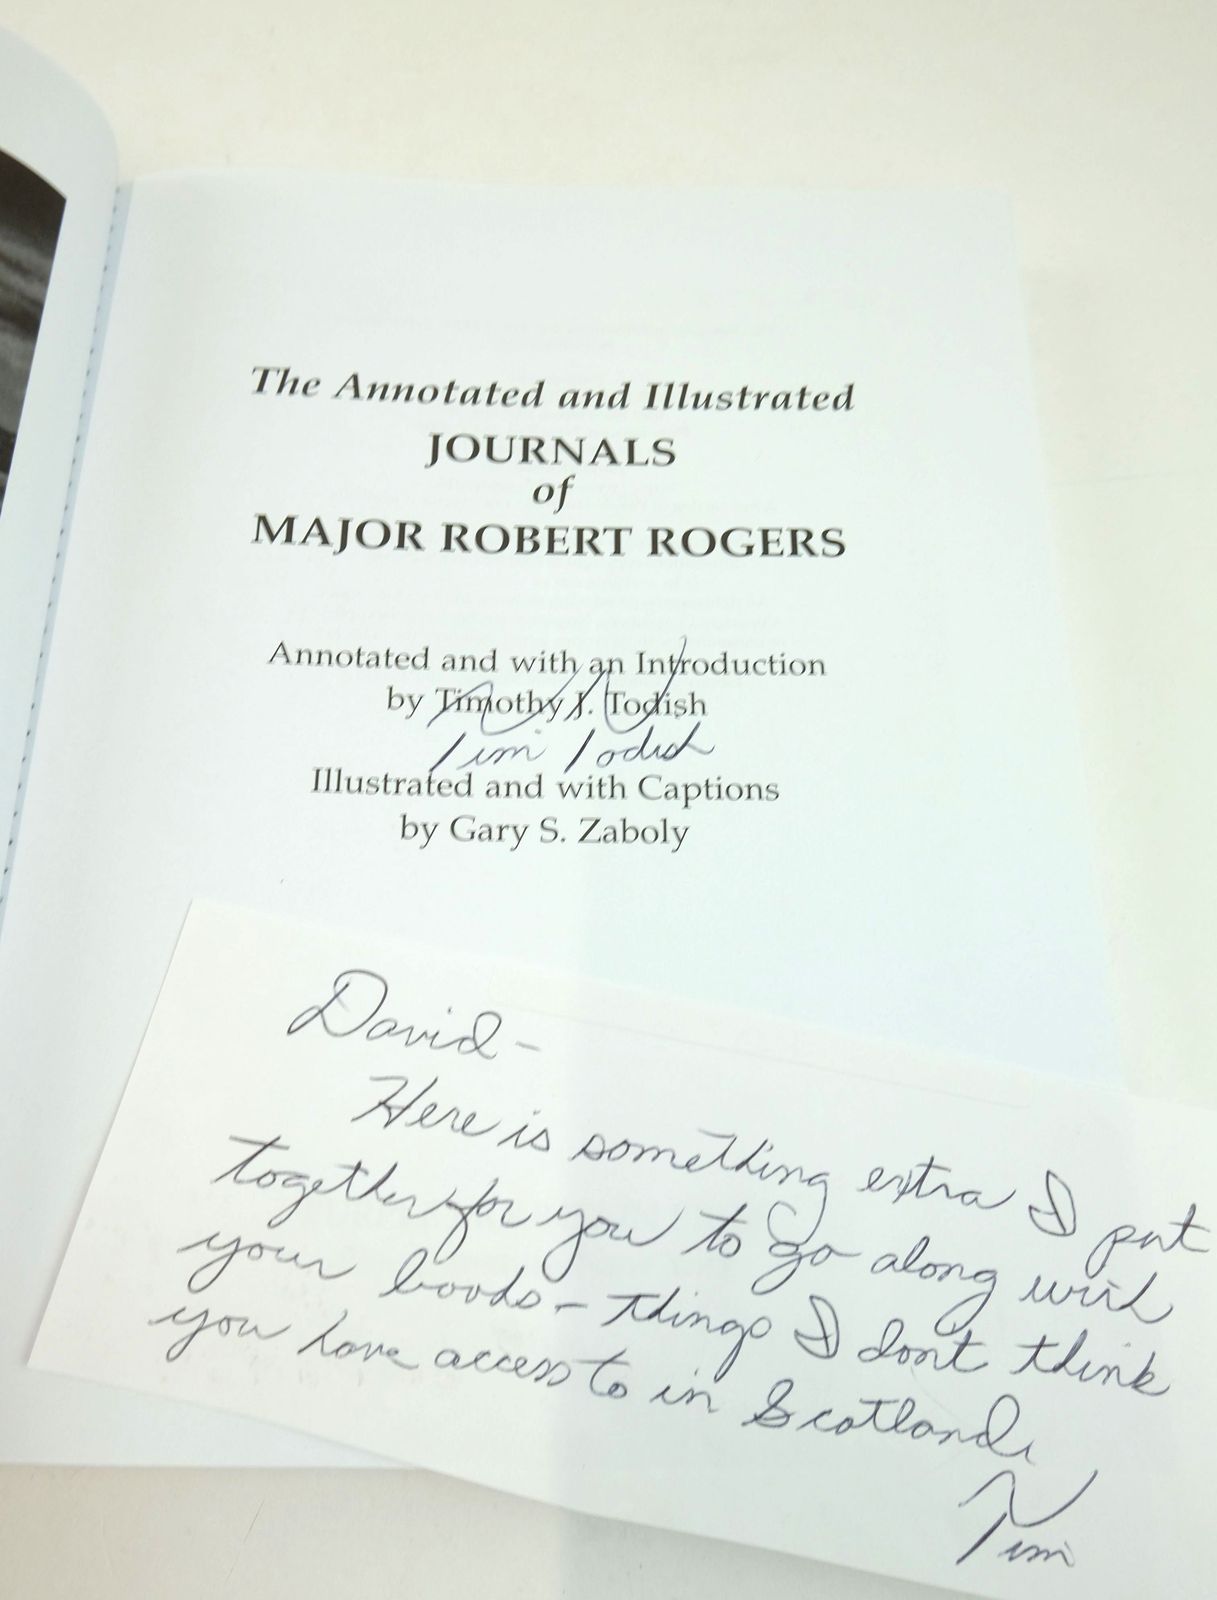 The Annotated and Illustrated
JOURNALS
of
MAJOR ROBERT ROGERS
Annotated and with an Introduction
by Timothy J. Todish
Tim Todish
Illustrated and with Captions
by Gary S. Zaboly
David -
Here is something extra I put
together for you to go along with
your books - things I dont think
you have access to in Scotland.
Tim